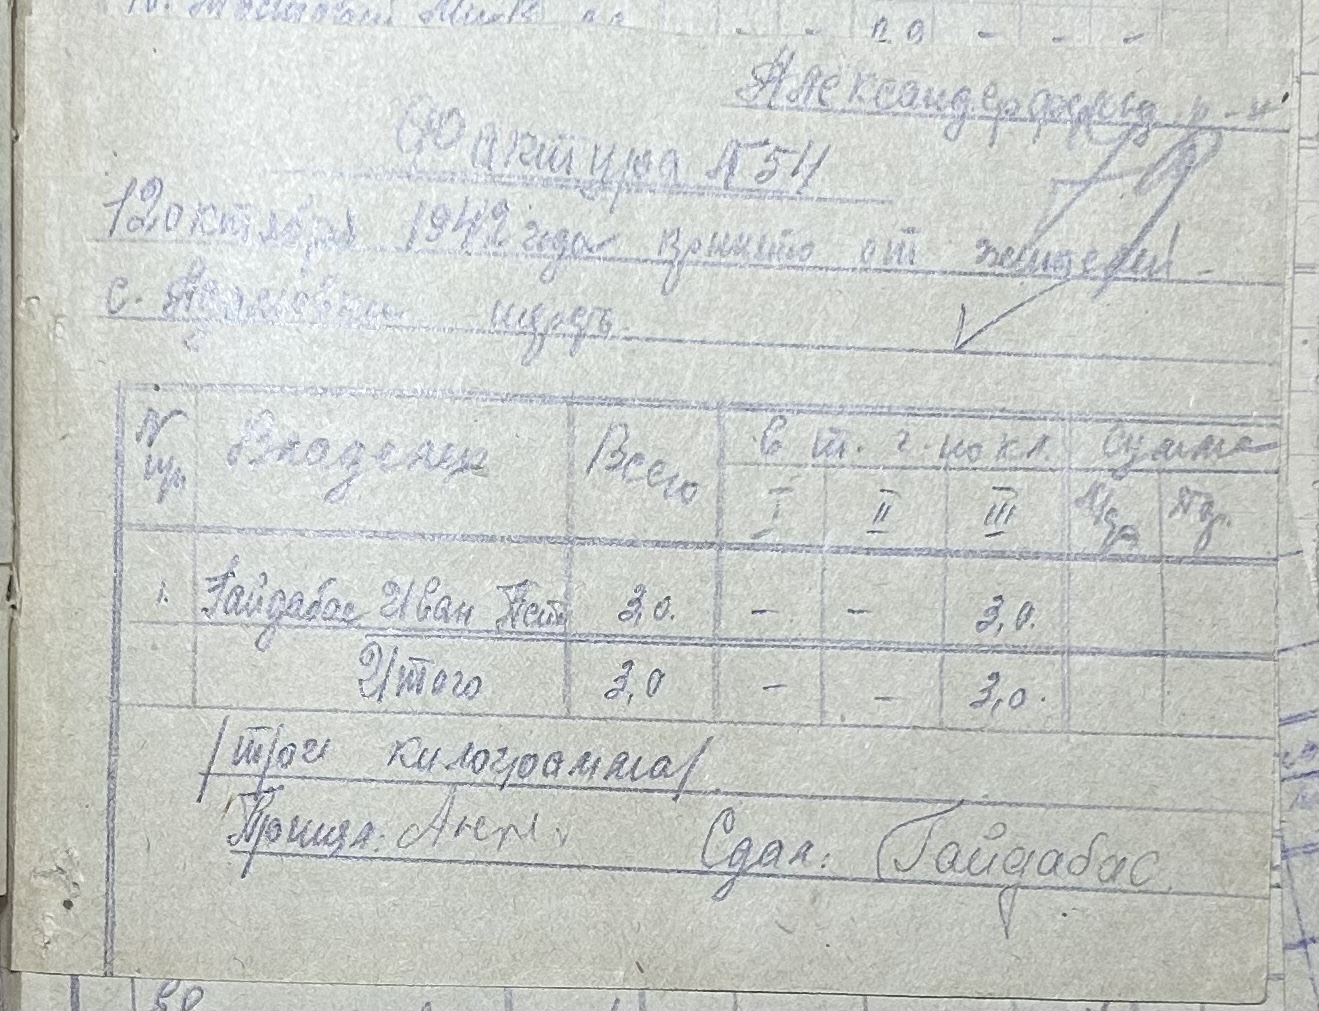 Александерфельд. р-н
Фактура №54
12 октября 1942 года принято от жителей
с. шерсть
№ пр. Владелец Всего в т. ч. по кл. Сумма
I II III
1. Гайдабас Иван 3,0. – – 3,0.
Итого 3,0 – – 3,0.
/три килограмма/
Принял: Сдал: Гайдабас